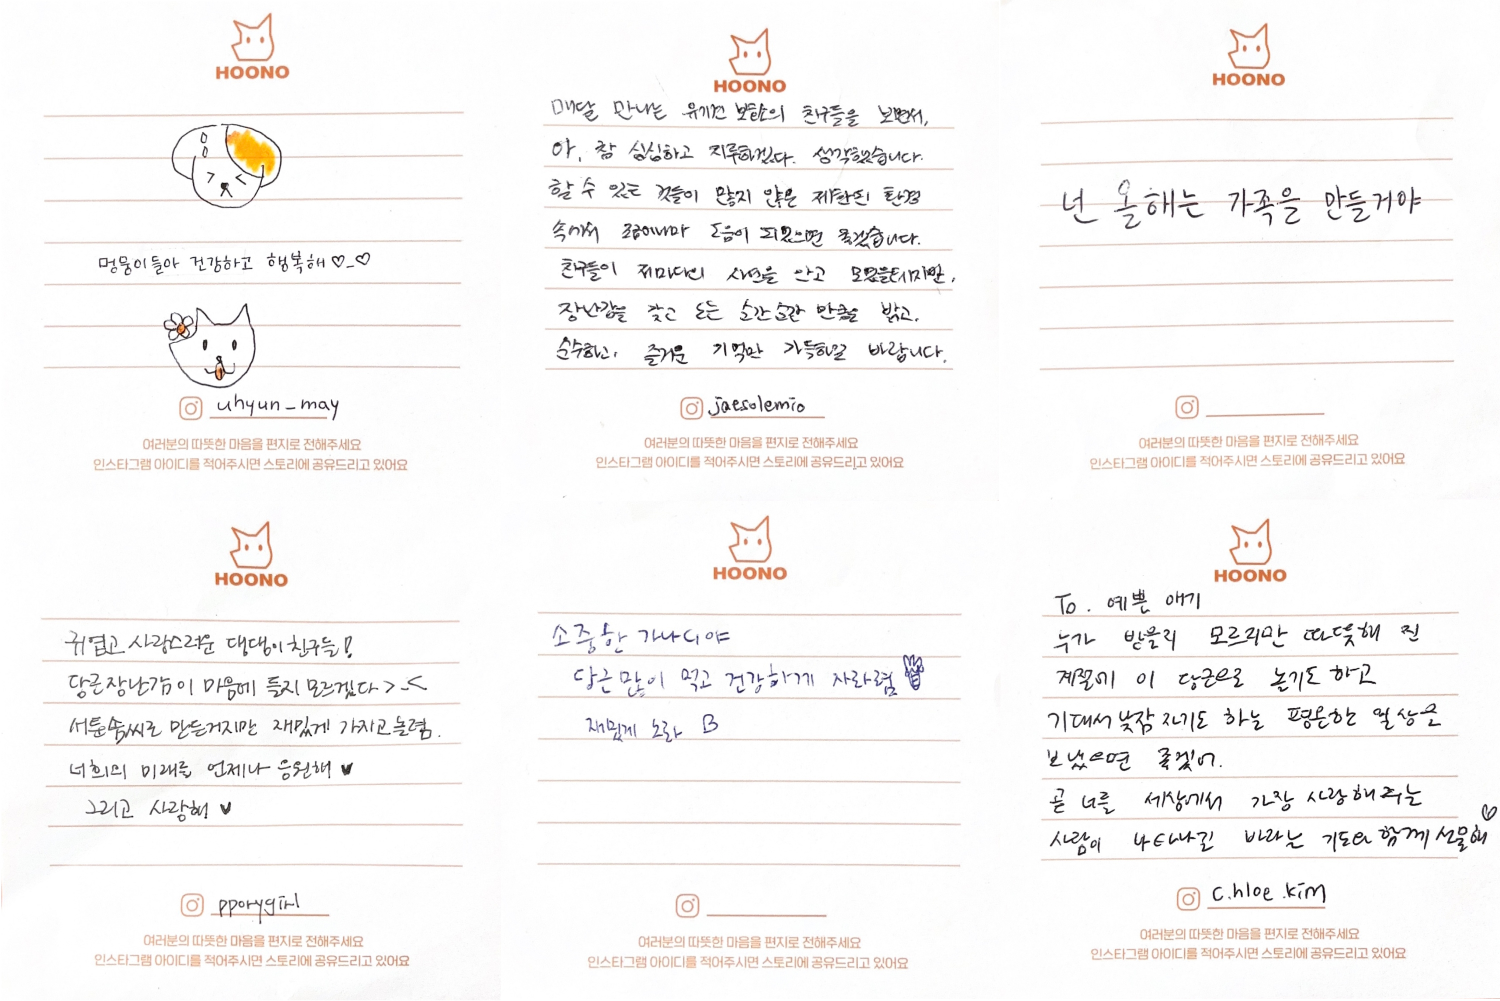 HOONO
멍뭉이들아 건강하고 행복해♡_♡
uhyun_may
여러분의 따뜻한 마음을 편지로 전해주세요
인스타그램 아이디를 적어주시면 스토리에 공유드리고 있어요
HOONO
매달 만나는 유기견 보호소의 친구들을 보면서,
아, 참 심심하고 지루하겠다. 생각했습니다.
할 수 있는 것들이 많지 않은 제한된 환경
속에서 조금이나마 도움이 되었으면 좋겠습니다.
친구들이 저마다의 사연을 안고 모였을테지만,
장난감을 갖고 노는 순간순간 만큼은 밝고,
순수하고, 즐거운 기억만 가득하길 바랍니다.
jaesolemio
여러분의 따뜻한 마음을 편지로 전해주세요
인스타그램 아이디를 적어주시면 스토리에 공유드리고 있어요
HOONO
넌 올해는 가족을 만들거야
여러분의 따뜻한 마음을 편지로 전해주세요
인스타그램 아이디를 적어주시면 스토리에 공유드리고 있어요
HOONO
귀엽고 사랑스러운 댕댕이친구들!
당근장난감이 마음에 들지 모르겠다>.<
서툰솜씨로 만든거지만 재밌게 가지고놀렴.
너희의 미래를 언제나 응원해♥
그리고 사랑해♥
pporygirl
여러분의 따뜻한 마음을 편지로 전해주세요
인스타그램 아이디를 적어주시면 스토리에 공유드리고 있어요
HOONO
소중한 가나디야
당근 많이 먹고 건강하게 자라렴
재밌게 노라
여러분의 따뜻한 마음을 편지로 전해주세요
인스타그램 아이디를 적어주시면 스토리에 공유드리고 있어요
HOONO
To. 예쁜 애기
누가 받을지 모르지만 따뜻해 진
계절에 이 당근으로 놀기도 하고
기대서 낮잠 자기도 하는 평온한 일상을
보냈으면 좋겠어.
곧 너를 세상에서 가장 사랑해주는
사람이 나타나길 바라는 기도와 함께 선물해♡
c.hloe.kim
여러분의 따뜻한 마음을 편지로 전해주세요
인스타그램 아이디를 적어주시면 스토리에 공유드리고 있어요